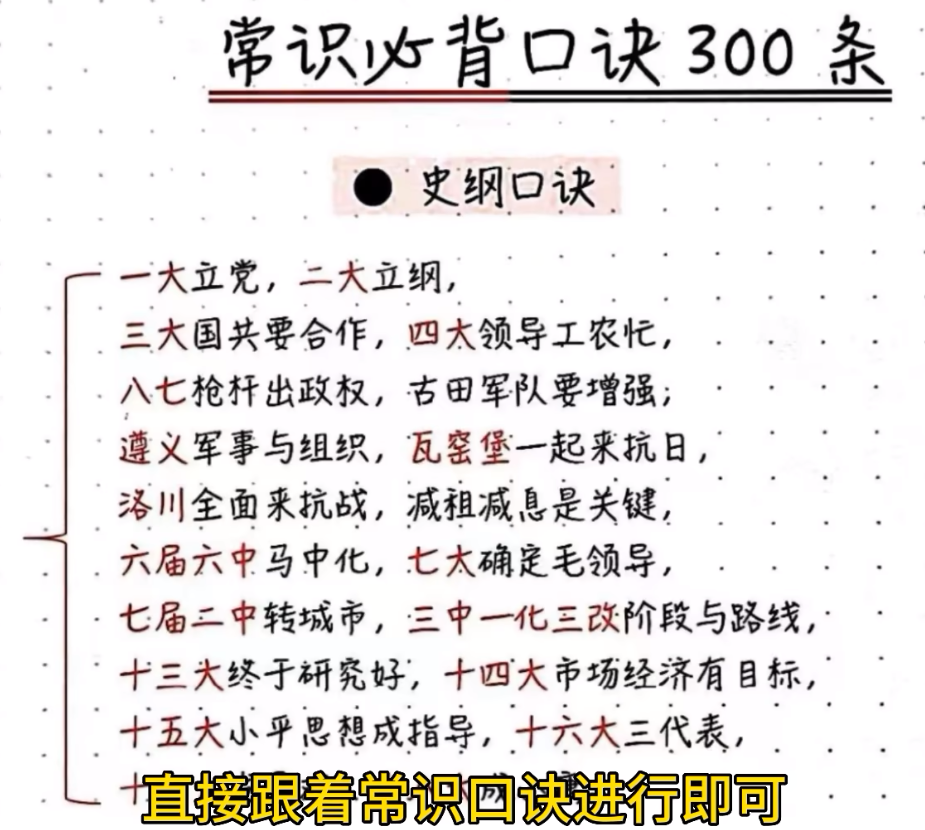 常识必背口诀300条
● 史纲口诀
一大立党，二大立纲，
三大国共要合作，四大领导工农忙，
八七枪杆出政权，古田军队要增强；
遵义军事与组织，瓦窑堡一起来抗日，
洛川全面来抗战，减租减息是关键，
六届六中马中化，七大确定毛领导，
七届二中转城市，三中一化三改阶段与路线，
十三大终于研究好，十四大市场经济有目标，
十五大小平思想成指导，十六大三代表，
十
直接跟着常识口诀进行即可